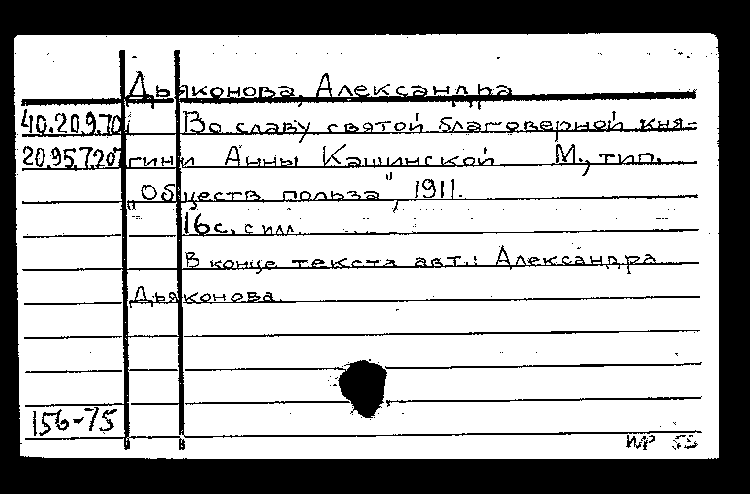 Дьяконова, Александра
40.20.9.70 Во славу святой благоверной кня-
20.95.7.207 гини Анны Кашинской М., тип.
„Обществ. польза", 1911.
16с. с илл.
В конце текста авт.: Александра
Дьяконова.
156-75